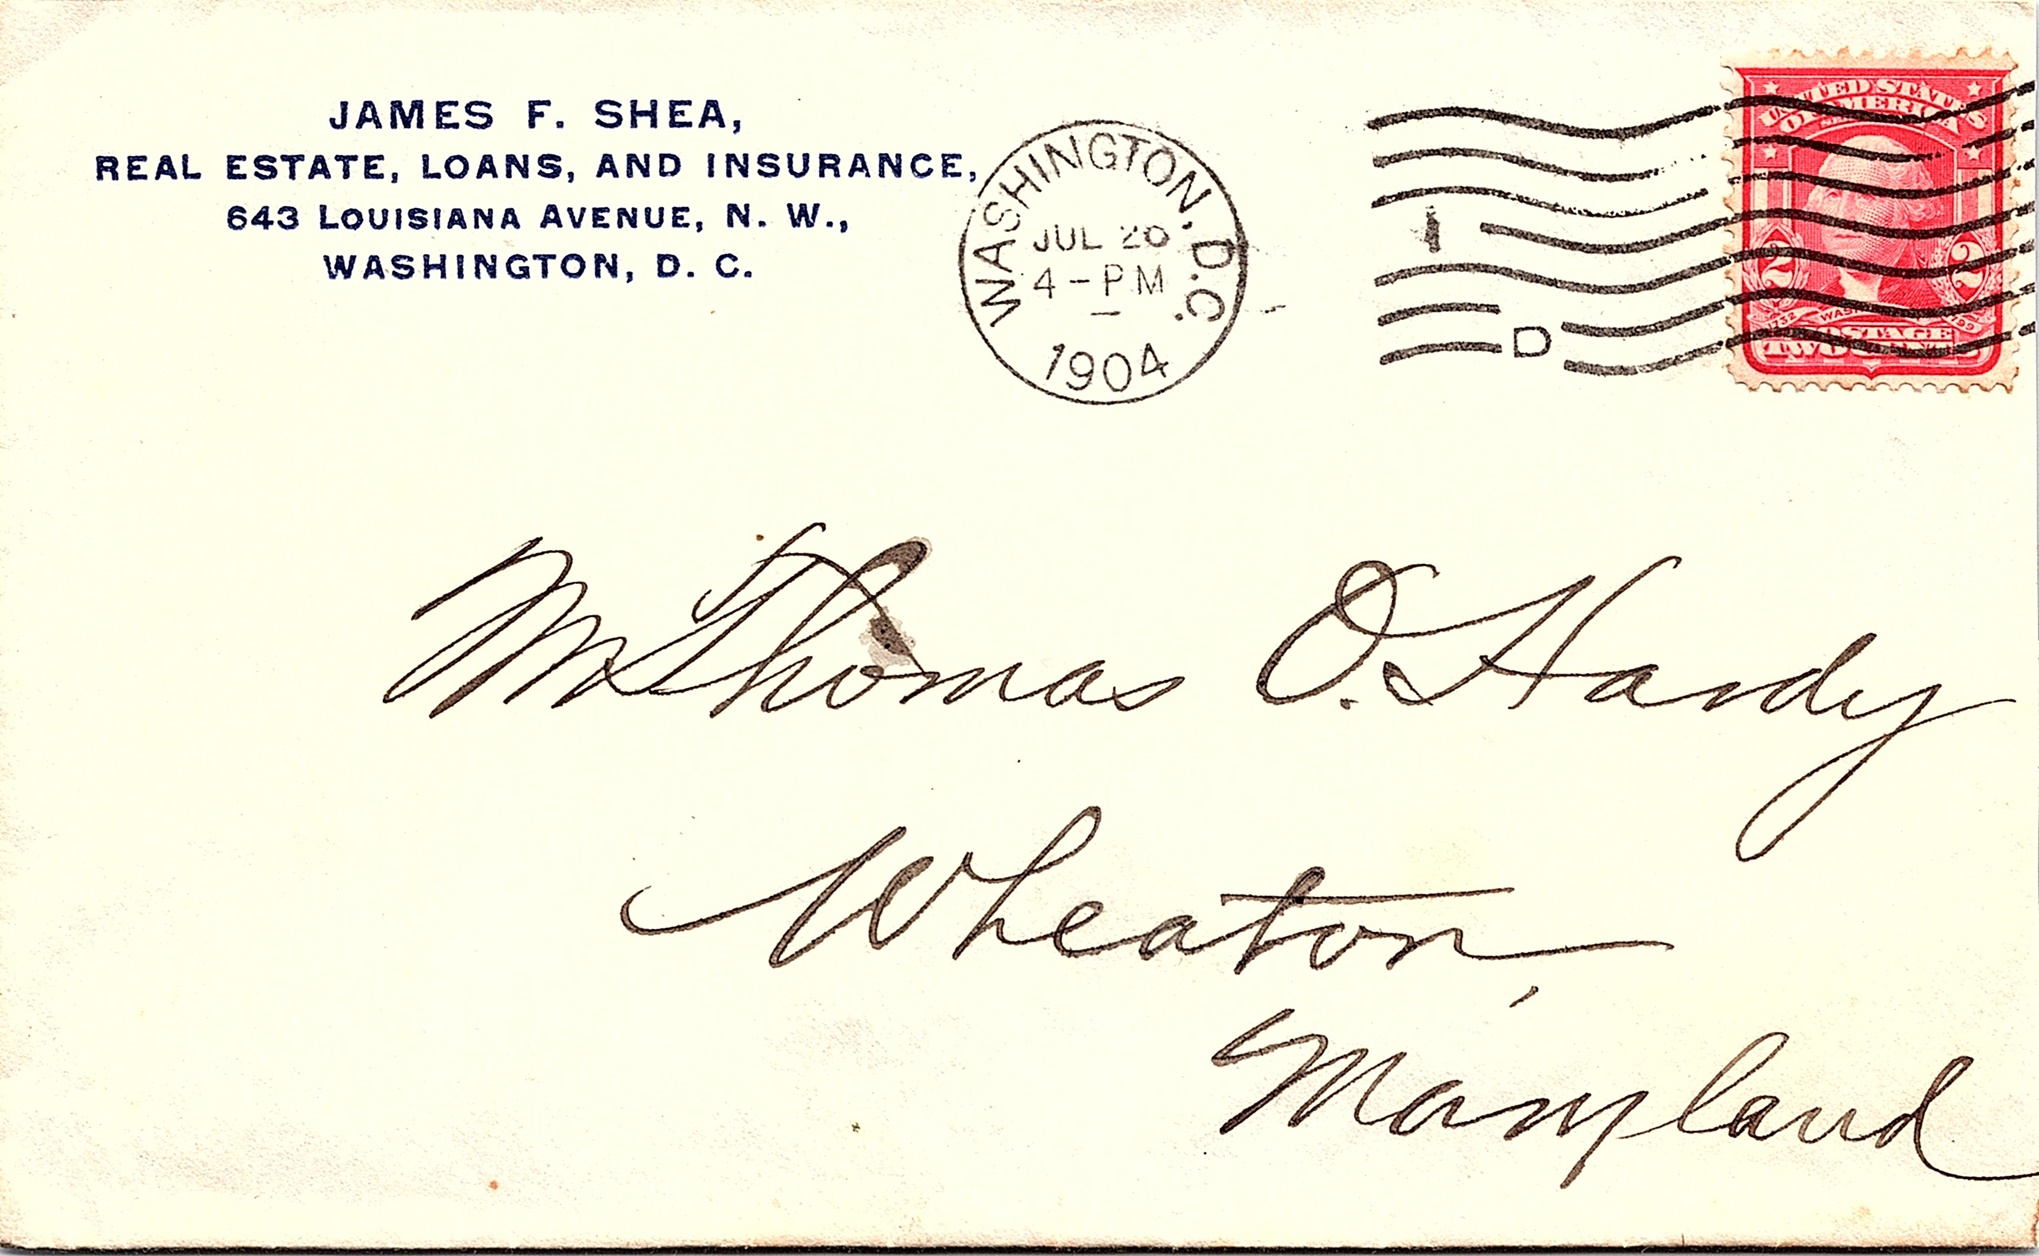 JAMES F. SHEA,
REAL ESTATE, LOANS, AND INSURANCE,
643 LOUISIANA AVENUE, N. W.,
WASHINGTON, D. C.
WASHINGTON, D.C.
JUL 26
4-PM
1904
1
D
UNITED STATES
OF AMERICA
2 2
1732 WASHINGTON 1799
POSTAGE
TWO CENTS
Mr Thomas O. Hardy
Wheaton,
Maryland